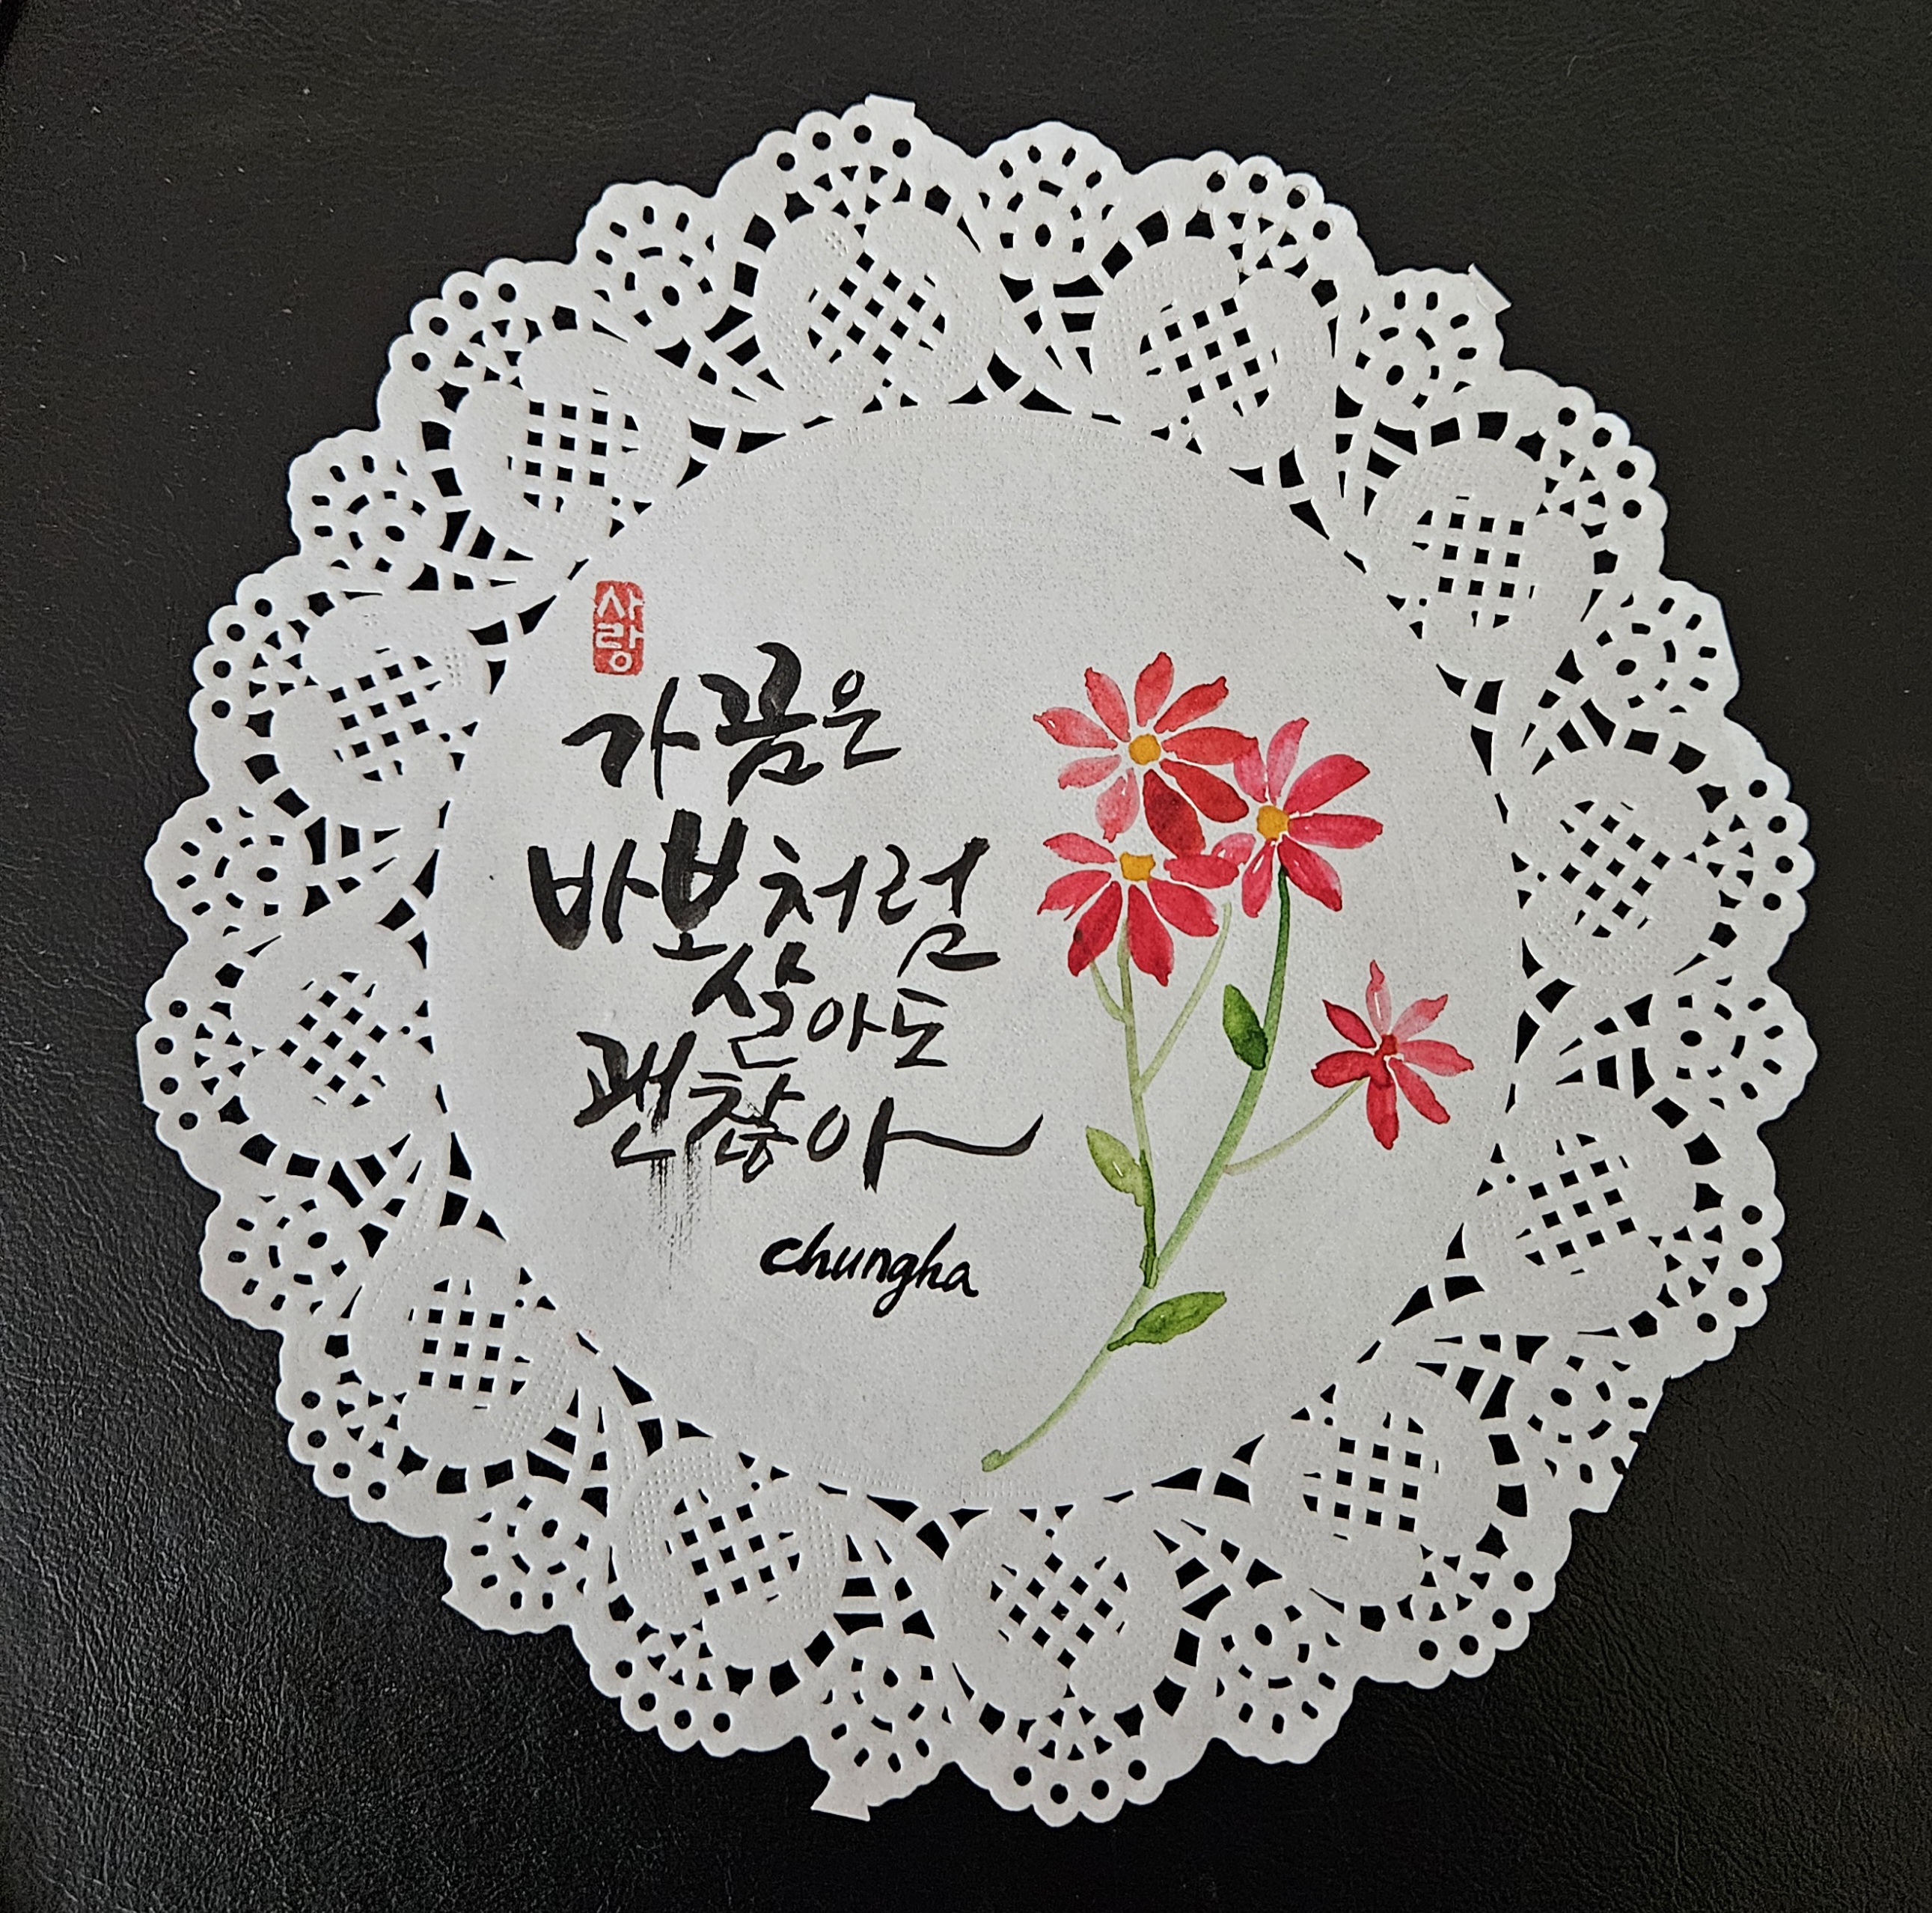 사랑
가끔은
바보처럼
살아도
괜찮아
chungha